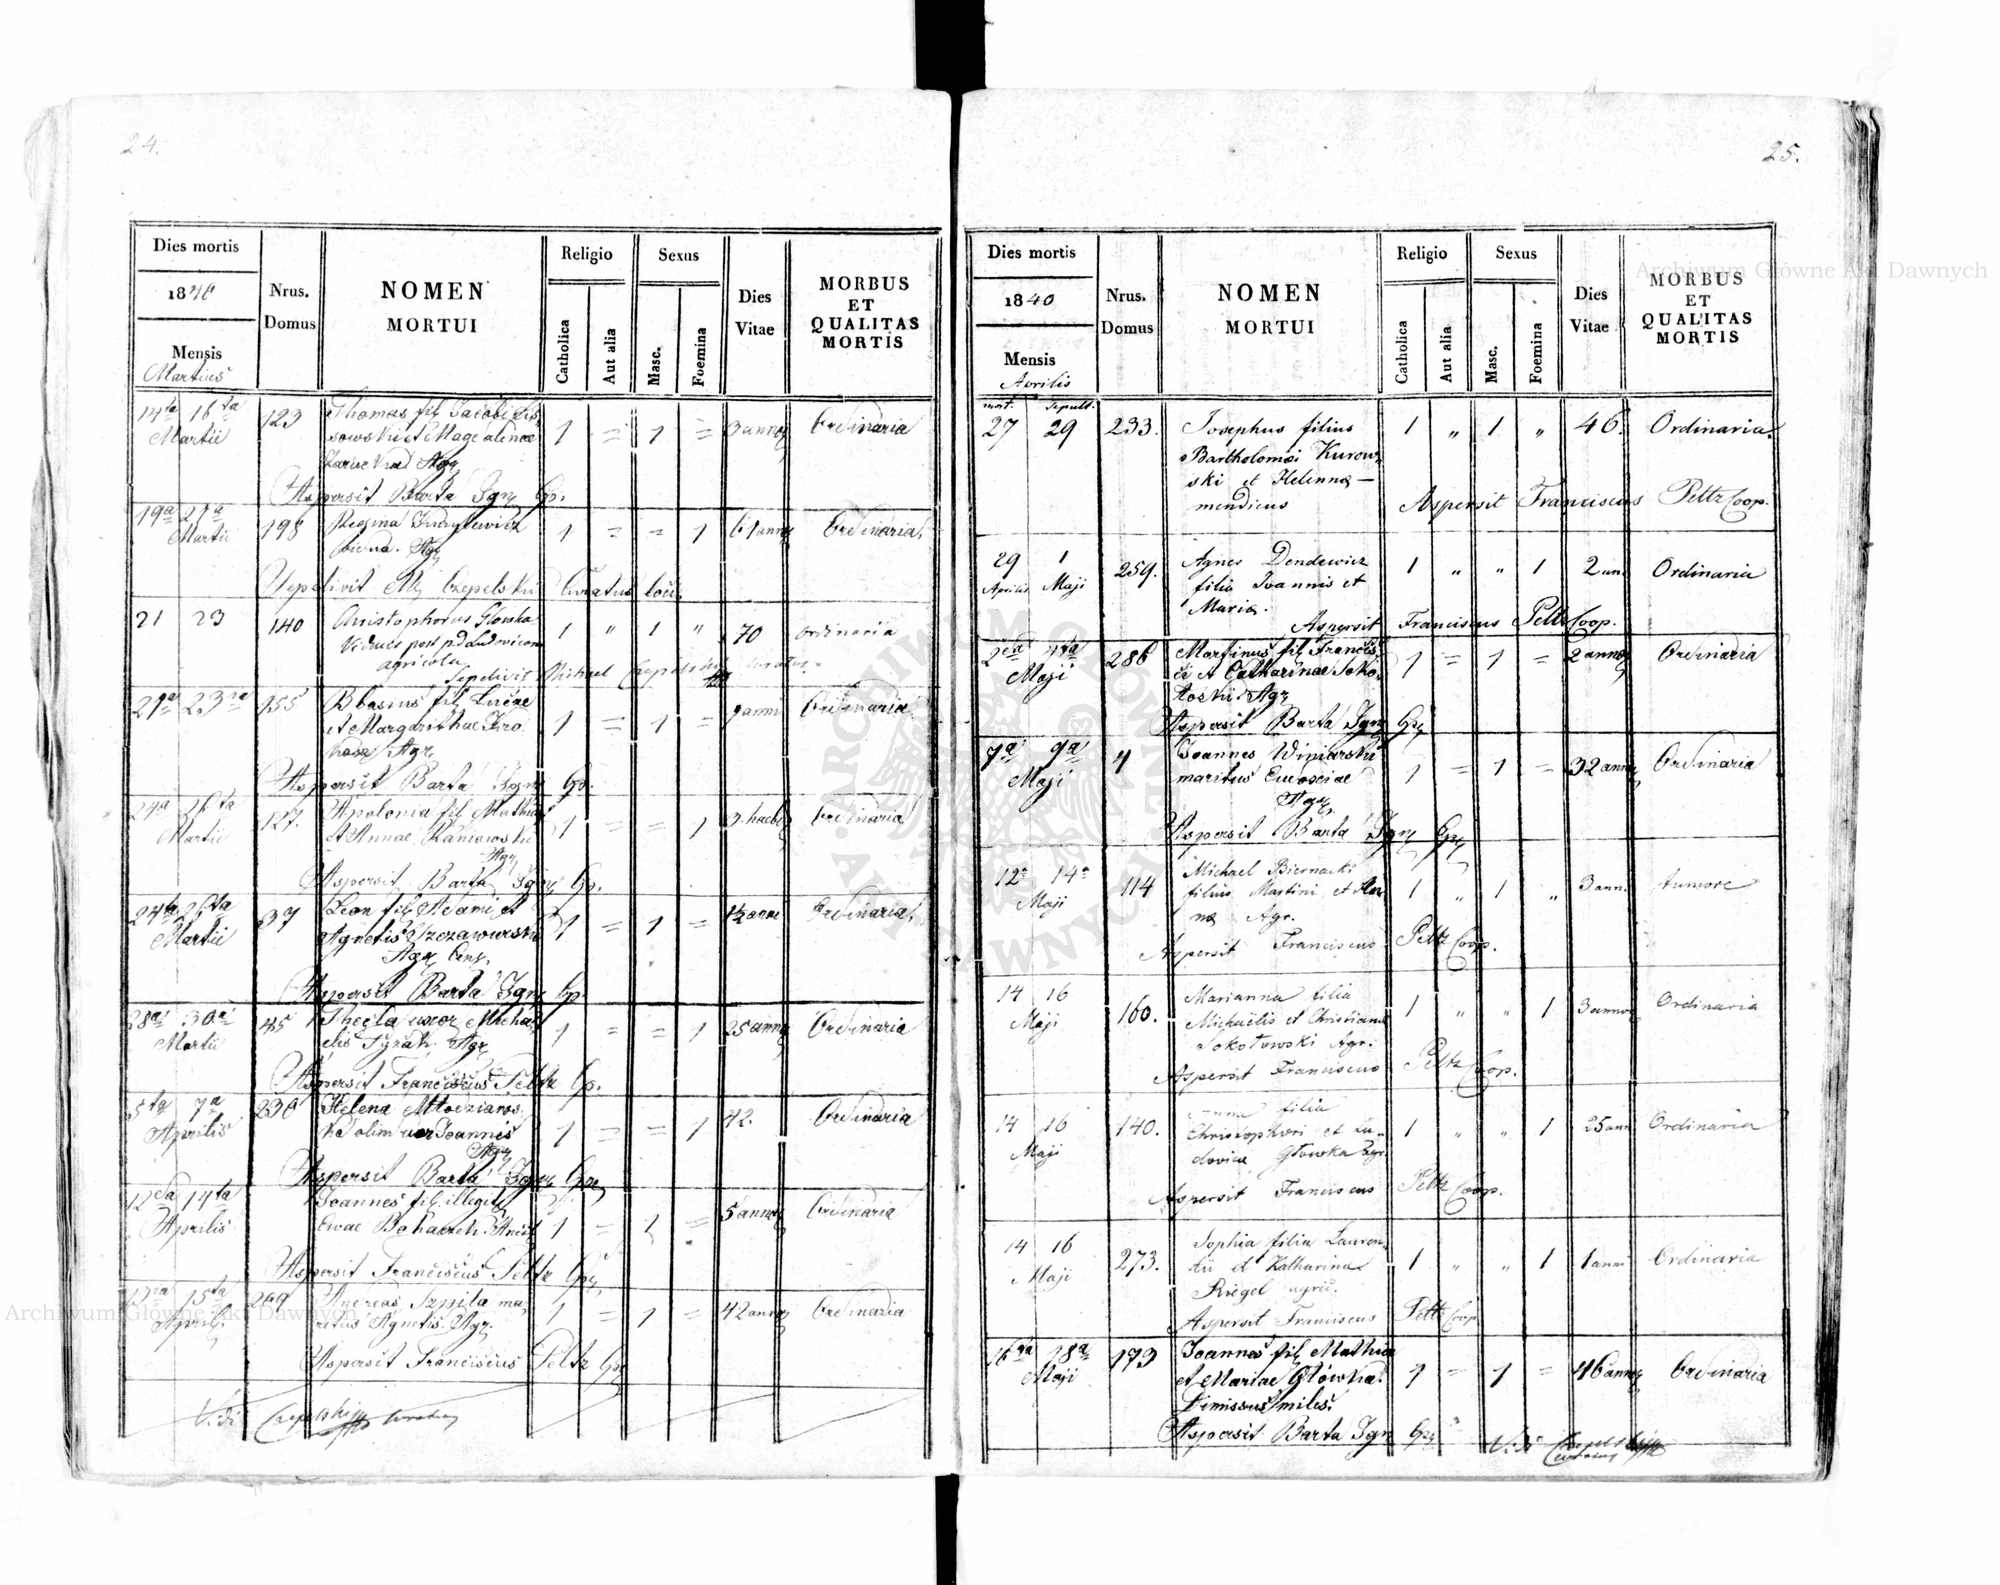 24.
Dies mortis
1840
Mensis
Martius
Nrus.
Domus
NOMEN
MORTUI
Religio
Catholica
Aut alia
Sexus
Masc.
Foemina
Dies
Vitae
MORBUS
ET
QUALITAS
MORTIS
14ta 16ta
Martii
123
Thomas fil Jacobi
et Magdalenae
Agr
1 = 1 = 3 annor Ordinaria
Aspersit Barta Ign Cp.
19a 21a
Martii
198
Regina
Agr
1 = = 1 61 annor Ordinaria
Sepelivit Czepelski Curatus loci
21 23
140
Christophorus Głowka
Viduus post p.d. Ludovicam
agricola
1 " 1 " 70 ordinaria
Sepelivit Michael Czepelski Curatus
21a 23a
155
Blasius fil Lucae
et Margarithae
Agr
1 = 1 = 9 anni Ordinaria
Aspersit Barta Ign Cp.
24a 26ta
Martii
127.
Apolonia fil Mathiae
et Annae
Agr
1 = = 1 Ordinaria
Aspersit Barta Ign Cp.
24ta 26ta
Martii
37
Leon fil Adami et
Agnetis
Agr
1 = 1 = 1½ anni Ordinaria
Aspersit Barta Ign Cp
28a 30a
Martii
45
Thecla uxor Micha
elis Agr
1 = = 1 25 annor Ordinaria
Aspersit Franciscus Peltz Cp.
5ta 7a
Aprilis
230
Helena Młodzianos
ka olim uxor Joannis
Agr
1 = = 1 42. Ordinaria
Aspersit Barta Ign Cp
12da 14ta
Aprilis
Joannes fil illegit
Evae
1 = 1 = 5 annor Ordinaria
Aspersit Franciscus Peltz Cp
15ta
Aprilis
269
Andreas Szpila ma
ritus Agnetis Agr.
1 = 1 = 42 annor Ordinaria
Aspersit Franciscus Peltz Cp
Vidi Czepelski Curatus
25.
Dies mortis
1840
Mensis
Aprilis
Nrus.
Domus
NOMEN
MORTUI
Religio
Catholica
Aut alia
Sexus
Masc.
Foemina
Dies
Vitae
MORBUS
ET
QUALITAS
MORTIS
mort. Sepult.
27 29
233.
Josephus filius
Bartholomæi Kurow
ski et Helennæ —
mendicus
1 " 1 " 46. Ordinaria.
Aspersit Franciscus Peltz Coop.
29 1
Aprilis Maji
259.
Agnes Dendewicz
filia Joannis et
Maria.
1 " " 1 2 ann. Ordinaria
Aspersit Franciscus Peltz Coop.
2da 4ta
Maji
286
Martinus fil Francis
ci et Catharinae Soko
Agr
1 = 1 = 2 annor Ordinaria
Aspersit Barta Ign Cp
7a 9a
Maji
4
Joannes Winiarski
maritus Eudosciae
Agr
1 = 1 = 32 annor Ordinaria
Aspersit Barta Ign Cp
12a 14a
Maji
114
Michael Biernacki
filius Martini et An
næ Agr.
1 " 1 " 3 ann. tumore
Aspersit Franciscus Peltz Coop.
14 16
Maji
160.
Marianna filia
Michaëlis et Christianæ
Sokołowski Agr.
1 " " 1 3 annor Ordinaria
Aspersit Franciscus Peltz Coop.
14 16
Maji
140.
filia
Christophori et Lu-
dovicæ Głowka Agr.
1 " " 1 25 ann Ordinaria
Aspersit Franciscus Peltz Coop.
14 16
Maji
273.
Sophia filia Lauren
tii et Katharina
Riegel agric.
1 " " 1 1 anni Ordinaria
Aspersit Franciscus Peltz Coop
16ta 18a
Maji
173
Joannes fil Mathiae
et Mariae Główka.
Dimissus miles.
1 = 1 = 46 annor Ordinaria
Aspersit Barta Ign Cp
Vidi Czepelski
Curatus
Archiwum Główne Akt Dawnych
Archiwum Główne Akt Dawnych
ARCHIWUM GŁÓWNE AKT DAWNYCH